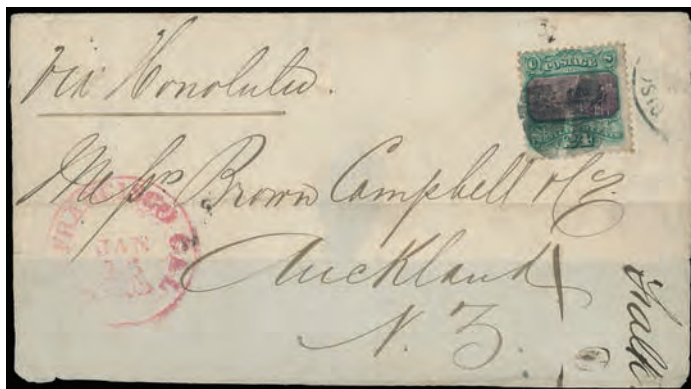 via Honolulu.
U POSTAGE S
Messrs Brown Campbell & Co
Auckland
N. Z.
FRANCISCO CAL
JAN